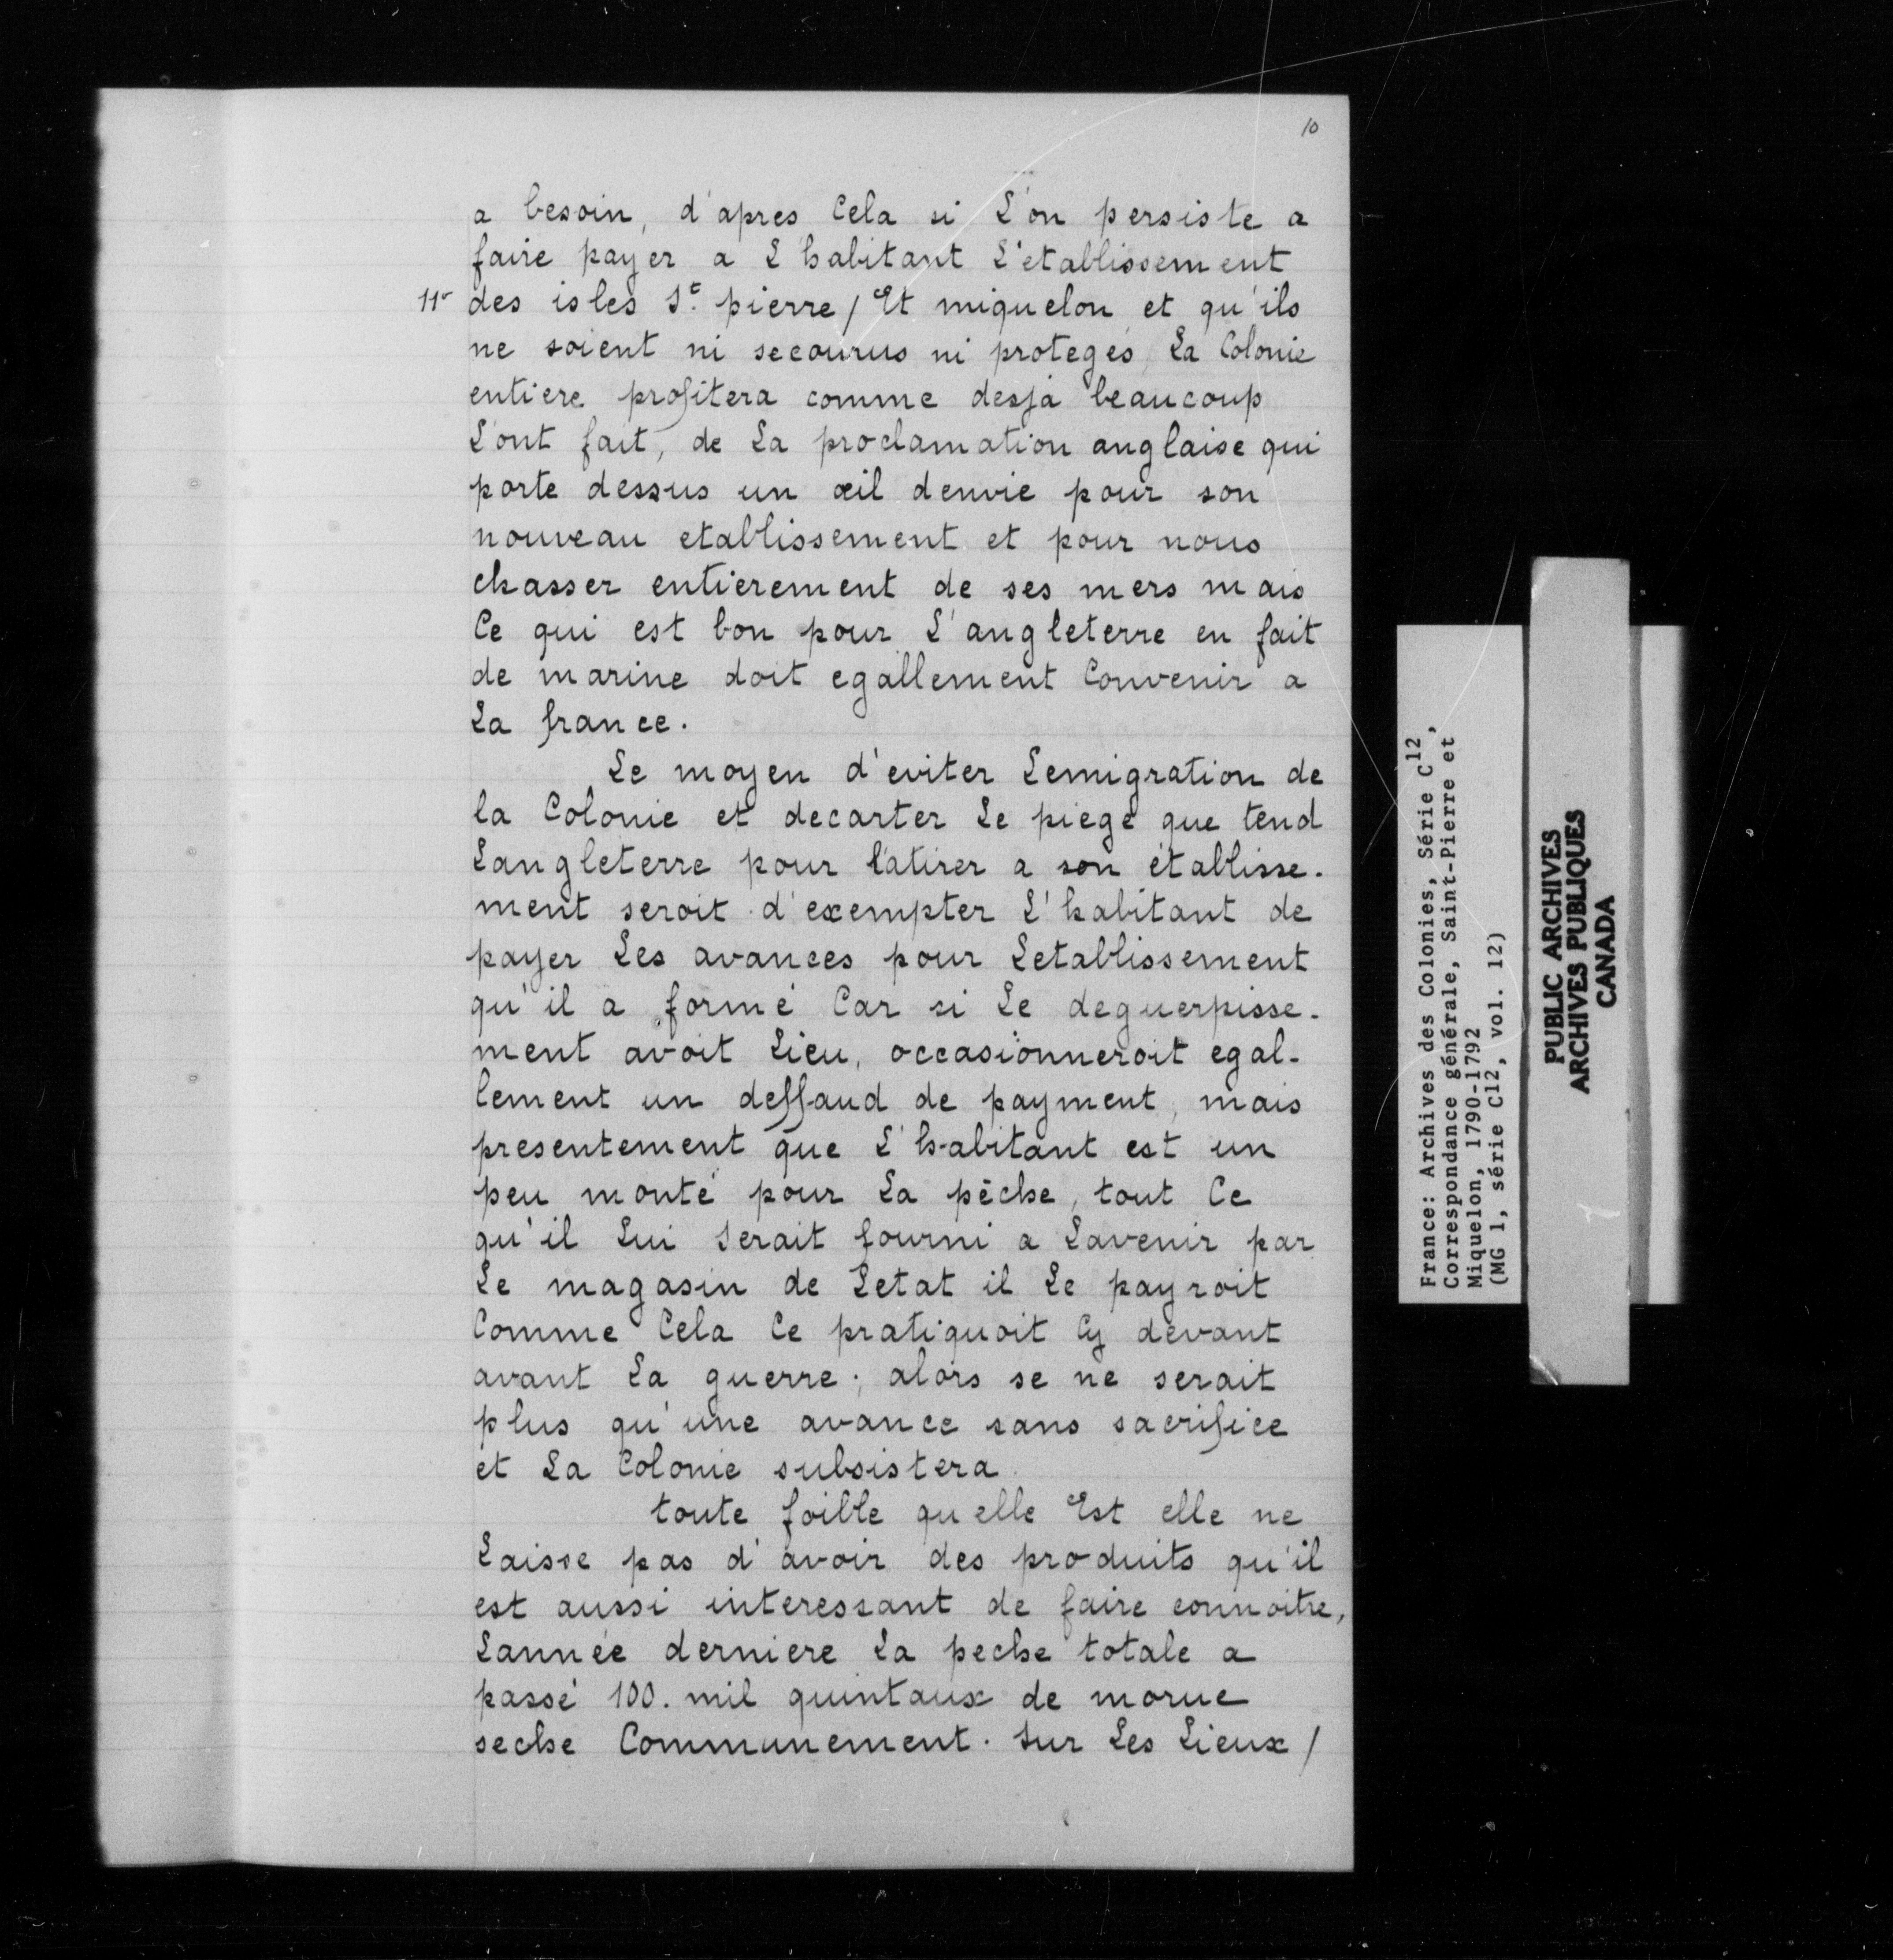 10
a besoin, d'apres Cela si L'on persiste a
faire payer a L'habitant L'etablissement
11r des isles St. pierre / Et miquelon et qu'ils
ne soient ni secourus ni protegés, La Colonie
entiere profitera comme desja beaucoup
L'ont fait, de La proclamation anglaise qui
porte dessus un œil denvie pour son
nouveau etablissement et pour nous
chasser entierement de ses mers mais
Ce qui est bon pour L'angleterre en fait
de marine doit egallement Convenir a
La france.
Le moyen d'eviter Lemigration de
la Colonie et decarter Le piege que tend
Langleterre pour l'atirer a son établisse-
ment seroit d'exempter L'habitant de
payer Les avances pour Letablissement
qu'il a formé Car si Le deguerpisse-
ment avoit Lieu, occasionneroit egal-
lement un deffaud de payment, mais
presentement que L'habitant est un
peu monté pour La pêche, tout Ce
qu'il Lui serait fourni a Lavenir par
Le magasin de Letat il Le payroit
Comme Cela Ce pratiquoit Cy devant
avant La guerre; alors se ne serait
plus qu'une avance sans sacrifice
et La Colonie subsistera.
toute foible quelle Est elle ne
Laisse pas d'avoir des produits qu'il
est aussi interessant de faire connoitre,
Lannée derniere La peche totale a
passé 100. mil quintaux de morue
seche Communement. sur Les Lieux /
France: Archives des Colonies, Série C12,
Correspondance générale, Saint-Pierre et
Miquelon, 1790-1792
(MG 1, série C12, vol. 12)
PUBLIC ARCHIVES
ARCHIVES PUBLIQUES
CANADA